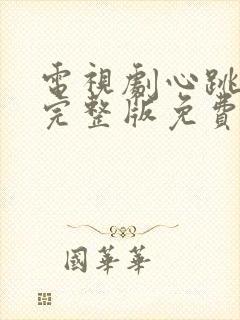 電視劇心跳
完整版免費
國華華